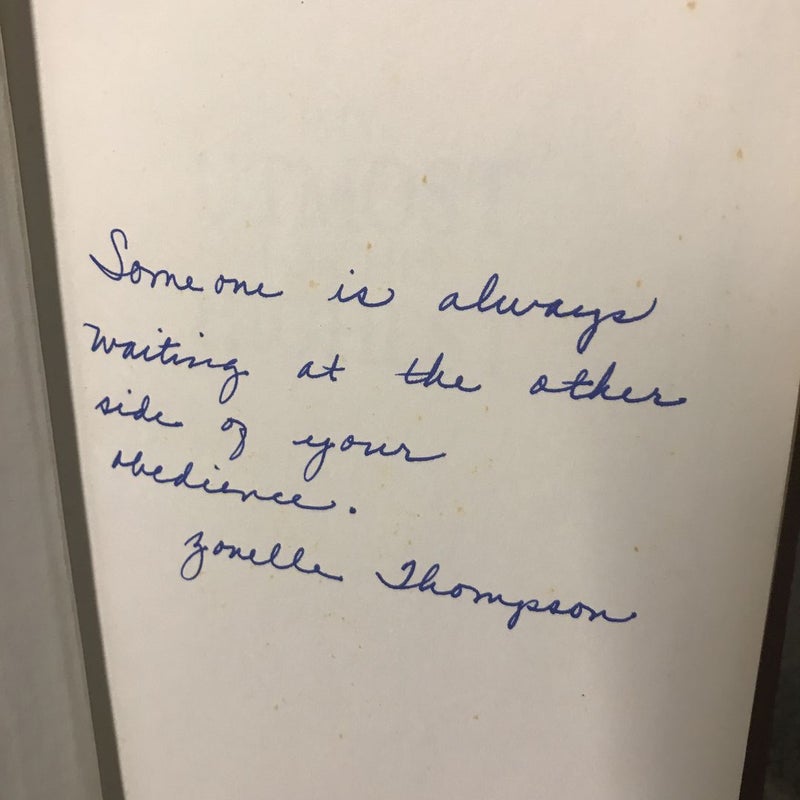 Someone is always
waiting at the other
side of your
obedience.
Zonelle Thompson